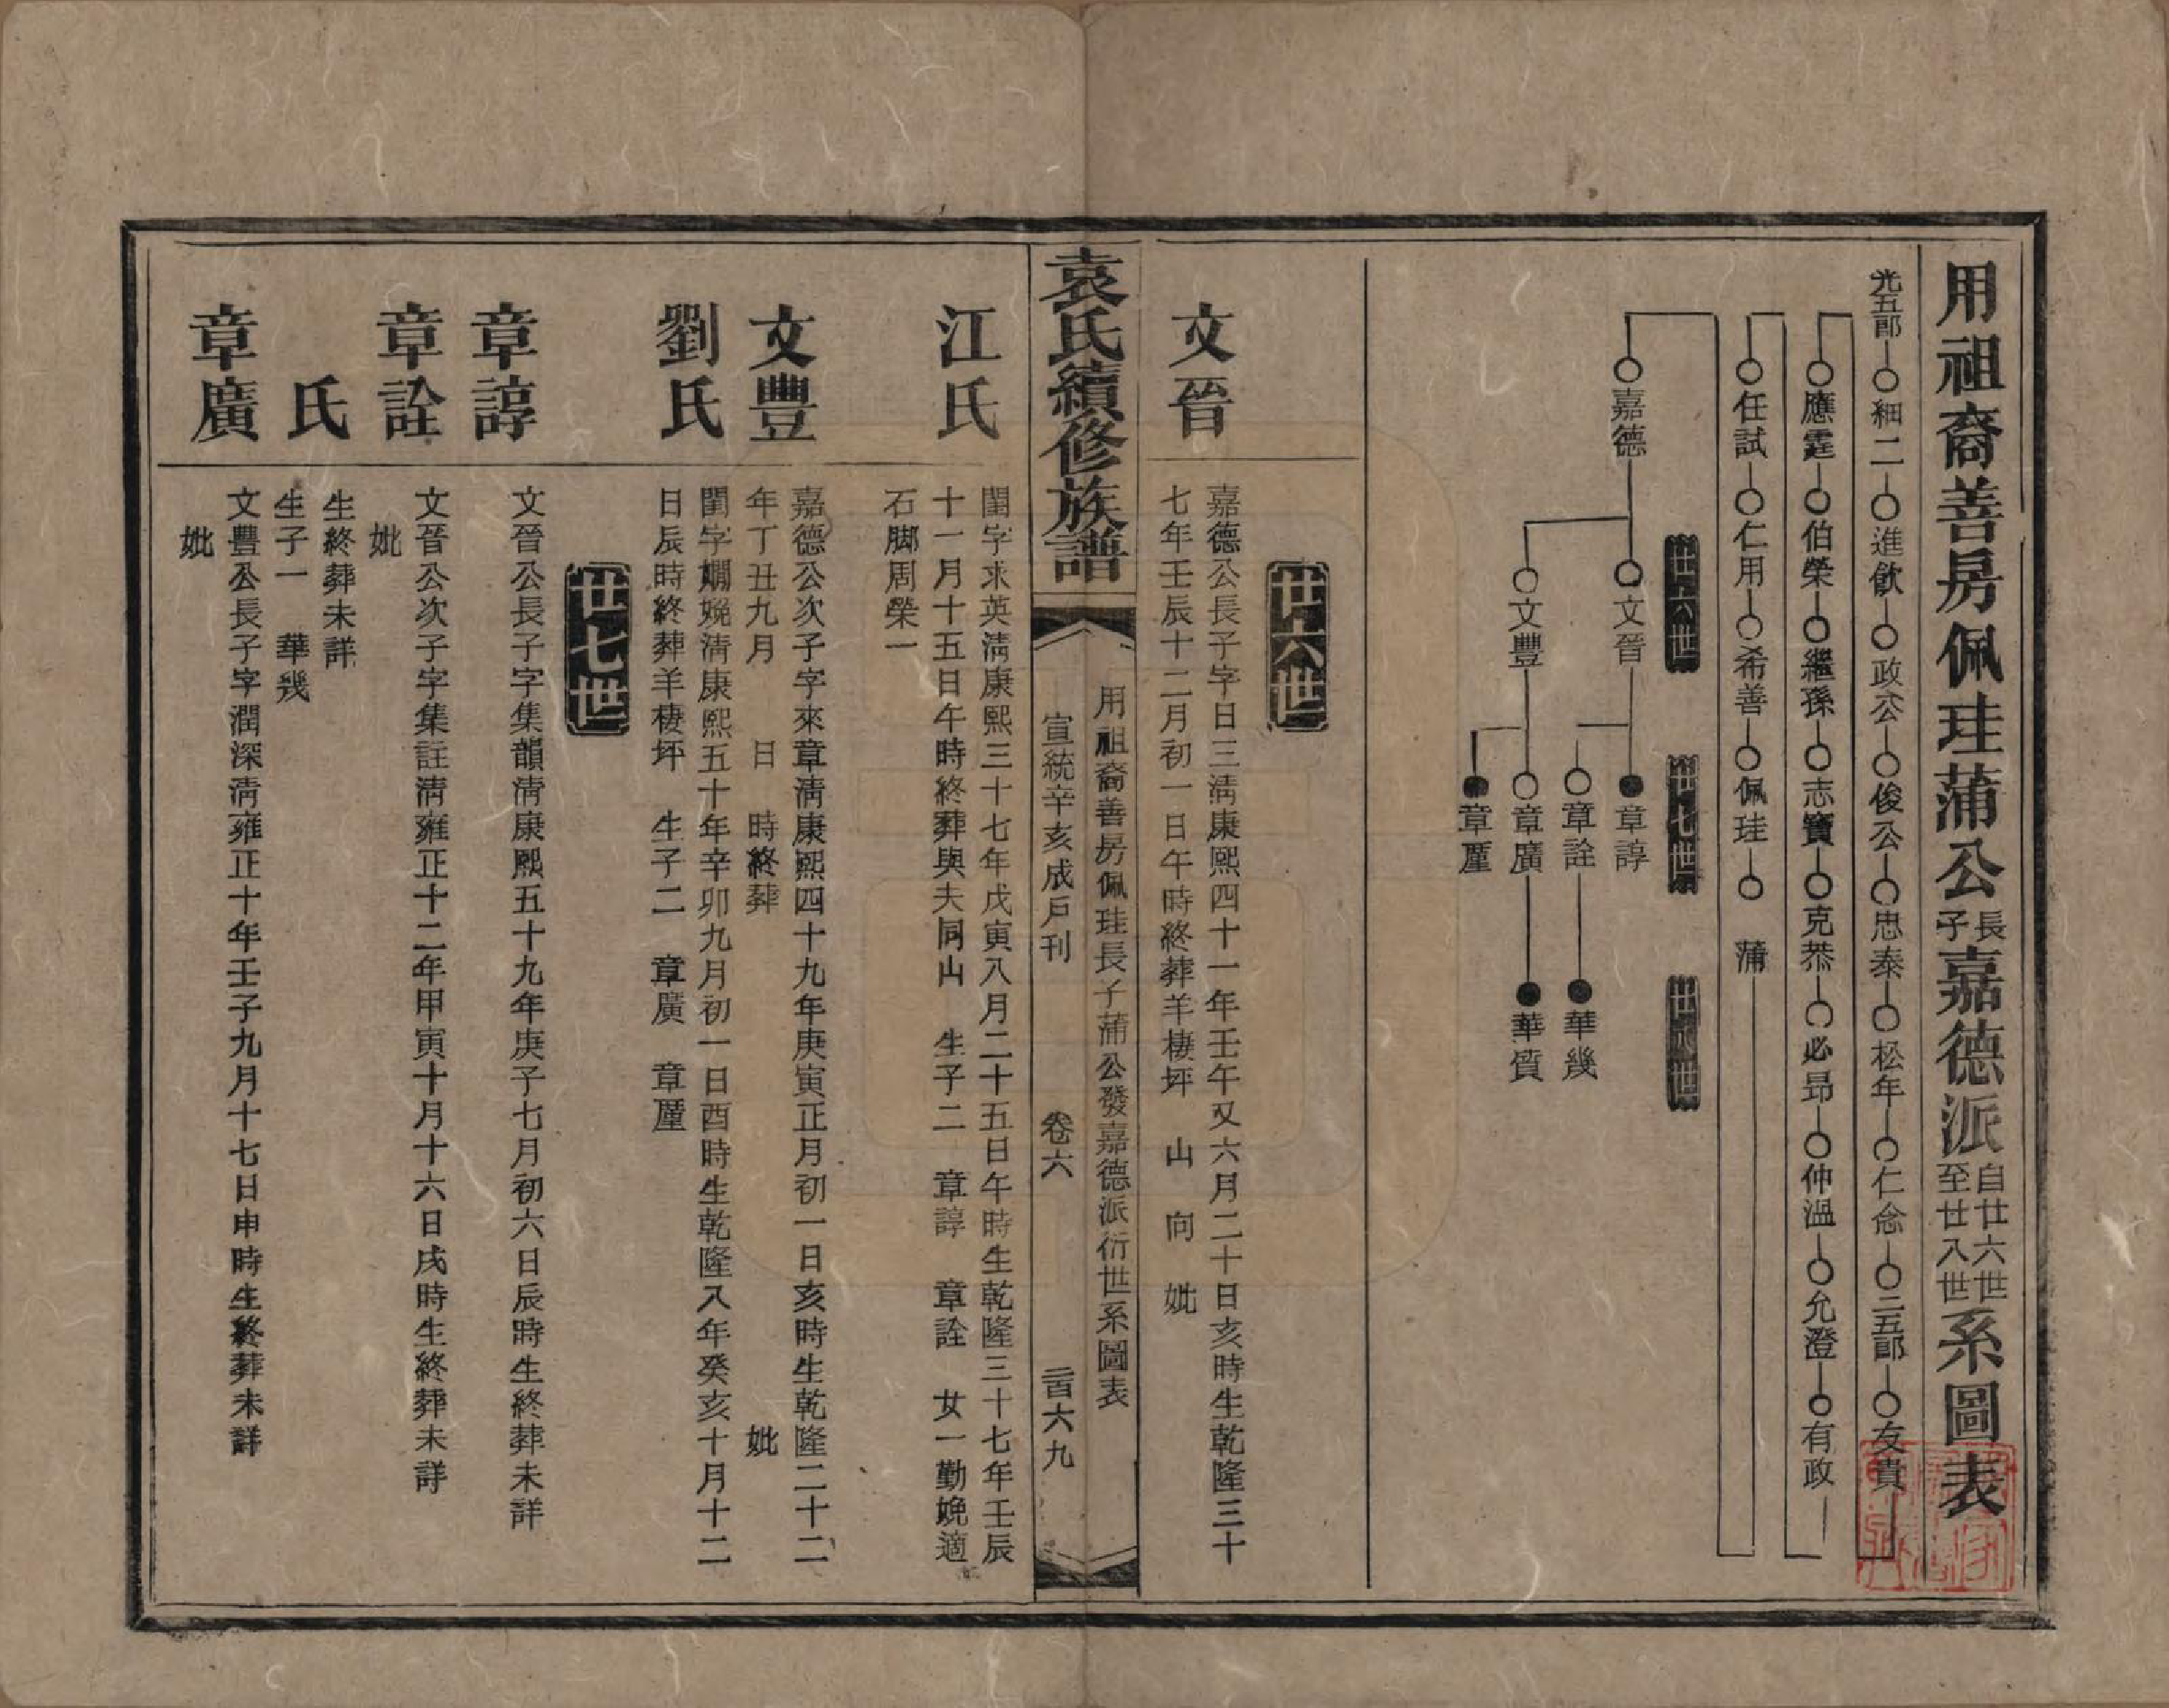 用祖裔善房佩珪蒲公長子嘉德派自廿六世至廿八世系圖表
光五郎○細二○進飲○政公○俊公○忠泰○松年○仁念○三五郎○友貴
○應霆○伯榮○繼孫○志寶○克恭○必昂○仲溫○允澄○有政
○任試○仁用○希善○佩珪○蒲
廿六世 廿七世 廿八世
○嘉德 ○文晉 ●章諄
○章詮 ●華幾
○文豐 ○章廣 ●華質
●章壓
廿六世
文晉
嘉德公長子字日三淸康熙四十一年壬午又六月二十日亥時生乾隆三十
七年壬辰十二月初一日午時終葬羊棲坪 山 向 妣
袁氏續修族譜
用祖裔善房佩珪長子蒲公發嘉德派衍世系圖表
宣統辛亥成戶刊 卷六 三百六九
江氏
閨字求英淸康熙三十七年戊寅八月二十五日午時生乾隆三十七年壬辰
十一月十五日午時終葬與夫同山 生子二 章諄 章詮 女一勤娩適
石脚周榮一
文豐
嘉德公次子字來章淸康熙四十九年庚寅正月初一日亥時生乾隆二十二
年丁丑九月 日 時終葬 妣
劉氏
閨字嫺娩淸康熙五十年辛卯九月初一日酉時生乾隆八年癸亥十月十二
日辰時終葬羊棲坪 生子二 章廣 章壓
廿七世
章諄
文晉公長子字集韻淸康熙五十九年庚子七月初六日辰時生終葬未詳
章詮
文晉公次子字集註淸雍正十二年甲寅十月十六日戌時生終葬未詳
妣
氏
生終葬未詳
生子一 華幾
章廣
文豐公長子字潤深淸雍正十年壬子九月十七日申時生終葬未詳
妣